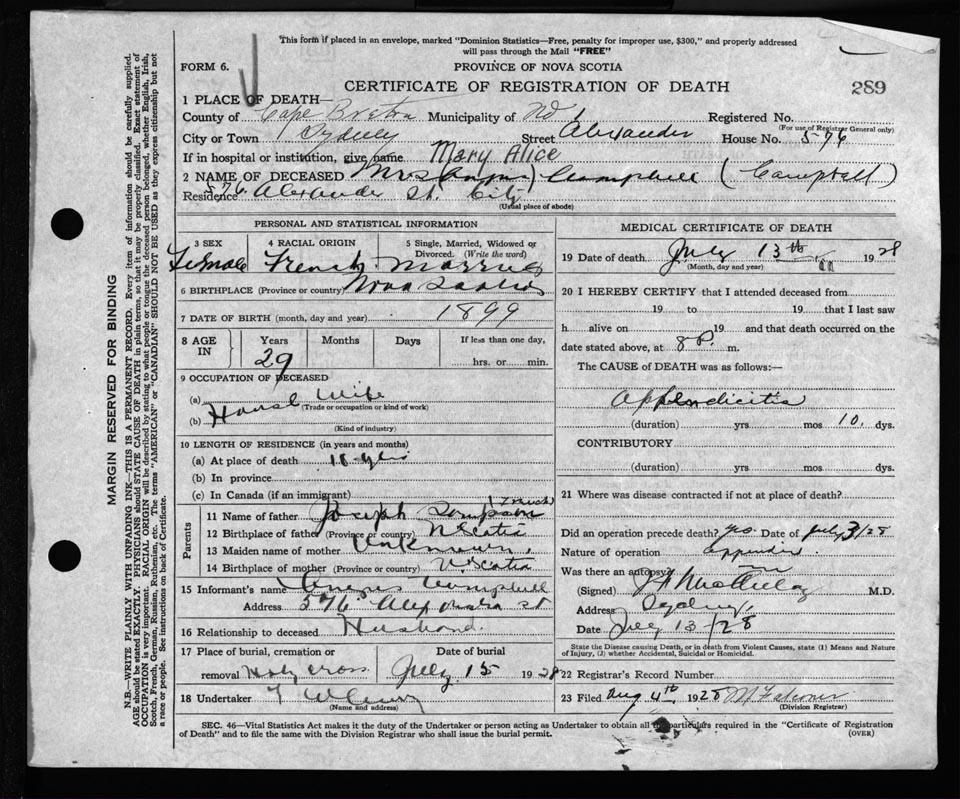 This form if placed in an envelope, marked "Dominion Statistics—Free, penalty for improper use, $300," and properly addressed
will pass through the Mail "FREE"
FORM 6.
PROVINCE OF NOVA SCOTIA
CERTIFICATE OF REGISTRATION OF DEATH
289
1 PLACE OF DEATH—
County of Cape Breton Municipality of Registered No.
(For use of Registrar General only)
City or Town Sydney Street Alexander House No. 576
If in hospital or institution, give name Mary Alice
2 NAME OF DECEASED Mrs (Angus) Campbell (Campbell)
Residence 576 Alexander St. City
(Usual place of abode)
PERSONAL AND STATISTICAL INFORMATION
3 SEX 4 RACIAL ORIGIN 5 Single, Married, Widowed or Divorced. (Write the word)
Female French Married
6 BIRTHPLACE (Province or country) Nova Scotia
7 DATE OF BIRTH (month, day and year) 1899
8 AGE IN Years Months Days If less than one day,
29 hrs. or min.
9 OCCUPATION OF DECEASED
(a) House Wife
(Trade or occupation or kind of work)
(b)
(Kind of industry)
10 LENGTH OF RESIDENCE (in years and months)
(a) At place of death 18 yrs
(b) In province
(c) In Canada (if an immigrant)
Parents
11 Name of father Joseph French
12 Birthplace of father (Province or country) N Scotia
13 Maiden name of mother Unknown
14 Birthplace of mother N. Scotia
15 Informant's name Angus Campbell
Address 576 Alexandra St
16 Relationship to deceased Husband
17 Place of burial, cremation or removal Date of burial
Holy Cross July 15 1928
18 Undertaker
(Name and address)
MEDICAL CERTIFICATE OF DEATH
19 Date of death July 13th 1928
(Month, day and year)
20 I HEREBY CERTIFY that I attended deceased from
19 to 19 that I last saw
h alive on 19 and that death occurred on the
date stated above, at 8 P. m.
The CAUSE of DEATH was as follows:—
Appendicitis
(duration) yrs mos 10. dys.
CONTRIBUTORY
(duration) yrs mos dys.
21 Where was disease contracted if not at place of death?
Did an operation precede death? yes. Date of July 3/28
Nature of operation appendix.
Was there an autopsy no
(Signed) M.D.
Address Sydney,
Date July 13/28
State the Disease causing Death, or in death from Violent Causes, state (1) Means and Nature of Injury, (2) whether Accidental, Suicidal or Homicidal.
22 Registrar's Record Number
23 Filed Aug 4th 1928
(Division Registrar)
SEC. 46—Vital Statistics Act makes it the duty of the Undertaker or person acting as Undertaker to obtain all particulars required in the "Certificate of Registration
of Death" and to file the same with the Division Registrar who shall issue the burial permit.
(OVER)
MARGIN RESERVED FOR BINDING
N.B.—WRITE PLAINLY WITH UNFADING INK—THIS IS A PERMANENT RECORD. Every item of information should be carefully supplied.
AGE should be stated EXACTLY. PHYSICIANS should STATE CAUSE OF DEATH in plain terms, so that it may be properly classified. Exact statement of
OCCUPATION is very important. RACIAL ORIGIN will be described by stating to what people or tongue the deceased person belonged, whether English, Irish,
Scotch, French, German, Russian, Ruthenian, etc. The terms "AMERICAN" or "CANADIAN" SHOULD NOT BE USED as they express citizenship but not
a race or people. See instructions on back of Certificate.